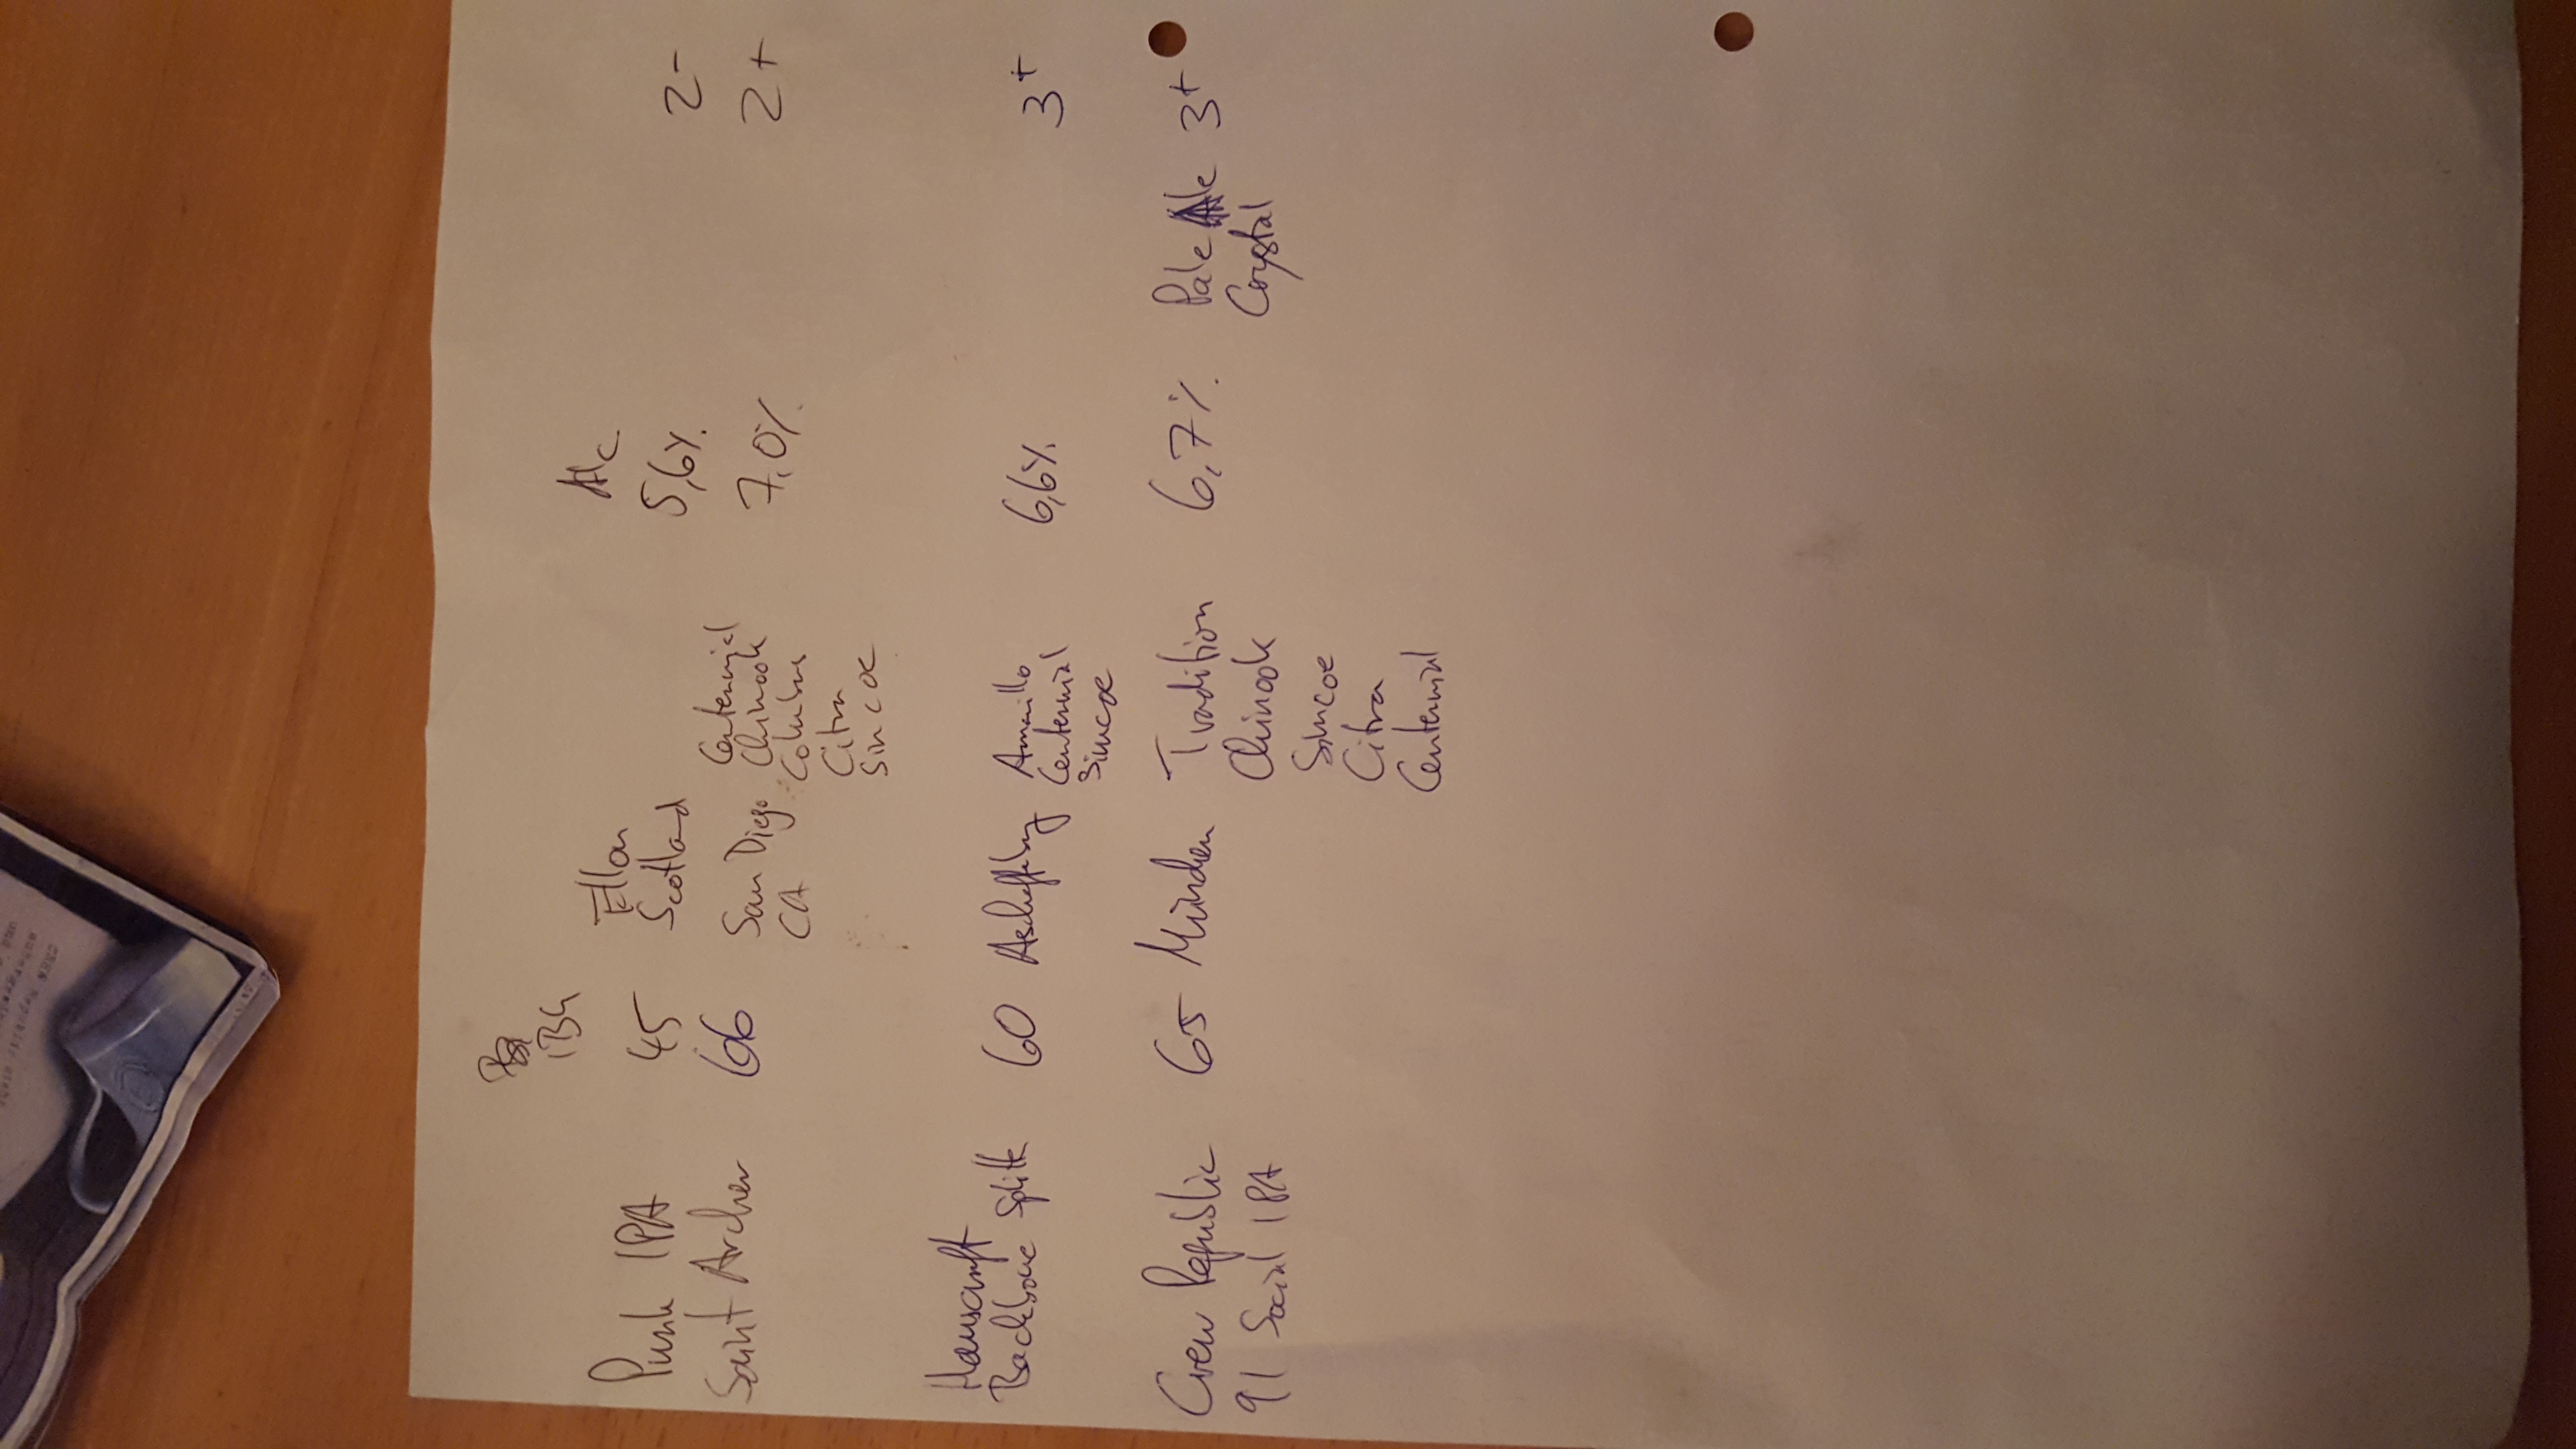 IBU Alc
Ellon
Punk IPA 45 Scotland 5,6% 2-
Saint Archer 66 San Diego Centennial 7,0% 2+
CA Chinook
Columbus
Citra
Simcoe
Hanscraft
Backbone Splitter 60 Aschaffenburg Amarillo 6,6% 3+
Centennial
Simcoe
Crew Republic 65 München Tradition 6,7% Pale Ale 3+
91 Social IPA Chinook Crystal
Simcoe
Citra
Centennial